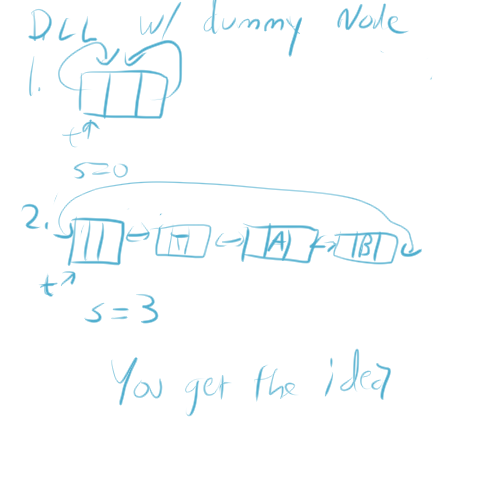 DLL w/ dummy Node
1.
t
s=0
2.
T A B
t
s=3
You get the idea